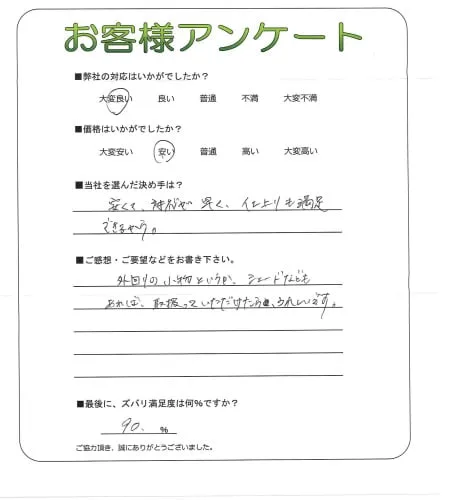 お客様アンケート
■弊社の対応はいかがでしたか？
大変良い 良い 普通 不満 大変不満
■価格はいかがでしたか？
大変安い 安い 普通 高い 大変高い
■当社を選んだ決め手は？
安くて、対応が早く、仕上りも満足
できるから。
■ご感想・ご要望などをお書き下さい。
外回りの小物というか、シェードなども
あれば、取扱っていただけたら、うれしいです。
■最後に、ズバリ満足度は何％ですか？
90. ％
ご協力頂き、誠にありがとうございました。